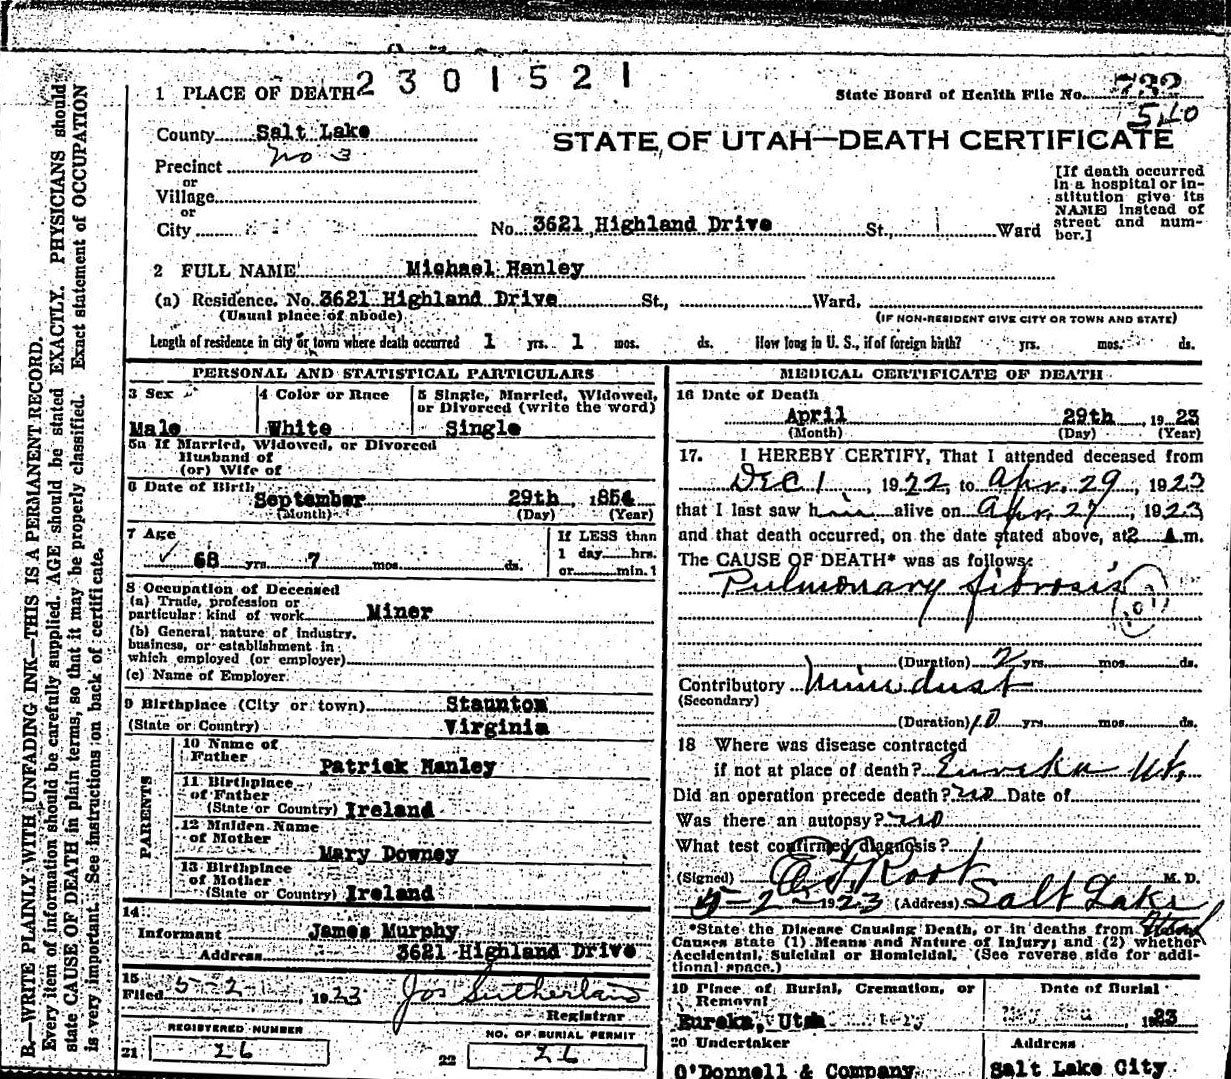 2301521
1 PLACE OF DEATH
State Board of Health File No. 732
540
County Salt Lake
STATE OF UTAH—DEATH CERTIFICATE
Precinct No 3
or
Village
or
City
No. 3621 Highland Drive St., Ward
[If death occurred
in a hospital or in-
stitution give its
NAME instead of
street and num-
ber.]
2 FULL NAME Michael Hanley
(a) Residence. No. 3621 Highland Drive St., Ward.
(Usual place of abode) (IF NON-RESIDENT GIVE CITY OR TOWN AND STATE)
Length of residence in city or town where death occurred 1 yrs. 1 mos. ds. How long in U. S., if of foreign birth? yrs. mos. ds.
PERSONAL AND STATISTICAL PARTICULARS
3 Sex
Male
4 Color or Race
White
5 Single, Married, Widowed,
or Divorced (write the word)
Single
5a If Married, Widowed, or Divorced
Husband of
(or) Wife of
6 Date of Birth
September 29th, 1854
(Month) (Day) (Year)
7 Age
68 yrs. 7 mos. ds.
If LESS than
1 day hrs.
or min.?
8 Occupation of Deceased
(a) Trade, profession or
particular kind of work Miner
(b) General nature of industry,
business, or establishment in
which employed (or employer)
(c) Name of Employer
9 Birthplace (City or town) Staunton
(State or Country) Virginia
PARENTS
10 Name of
Father
Patrick Hanley
11 Birthplace
of Father
(State or Country) Ireland
12 Maiden Name
of Mother
Mary Downey
13 Birthplace
of Mother
(State or Country) Ireland
14
Informant James Murphy
Address 3621 Highland Drive
15
Filed 5-2, 1923 Jos Sutherland
Registrar
REGISTERED NUMBER
21 26
NO. OF BURIAL PERMIT
22 26
MEDICAL CERTIFICATE OF DEATH
16 Date of Death
April 29th, 1923
(Month) (Day) (Year)
17. I HEREBY CERTIFY, That I attended deceased from
Dec 1, 1922, to Apr. 29, 1923
that I last saw him alive on Apr. 27, 1923
and that death occurred, on the date stated above, at 2 A.m.
The CAUSE OF DEATH* was as follows:
Pulmonary fibrosis
(Duration) 2 yrs. mos. ds.
Contributory Mine dust
(Secondary)
(Duration) 10 yrs. mos. ds.
18 Where was disease contracted
if not at place of death? Eureka Ut.
Did an operation precede death? no Date of
Was there an autopsy? no
What test confirmed diagnosis?
(Signed) Root M. D.
5-2-1923 (Address) Salt Lake
Utah
*State the Disease Causing Death, or in deaths from
Causes state (1) Means and Nature of Injury; and (2) whether
Accidental, Suicidal or Homicidal. (See reverse side for addi-
tional space.)
19 Place of Burial, Cremation, or
Removal
Eureka, Utah
Date of Burial
1923
20 Undertaker
O'Donnell & Company
Address
Salt Lake City
B.—WRITE PLAINLY WITH UNFADING INK—THIS IS A PERMANENT RECORD.
Every item of information should be carefully supplied. AGE should be stated EXACTLY. PHYSICIANS should
state CAUSE OF DEATH in plain terms, so that it may be properly classified. Exact statement of OCCUPATION
is very important. See instructions on back of certificate.